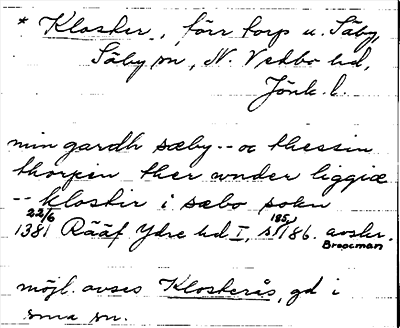 * Kloster, förr torp u. Säby,
Säby sn, N. Vedbo hd,
Jönk. l.
min gardh sæby -- oc thessin
thorpin ther wnder liggiæ
-- klostir i sæbo sokn
22/6
1381 Rääf Ydre hd I, s. 185, 186. avskr.
Broocman
möjl. avses Klosterås, gd i
sma sn.